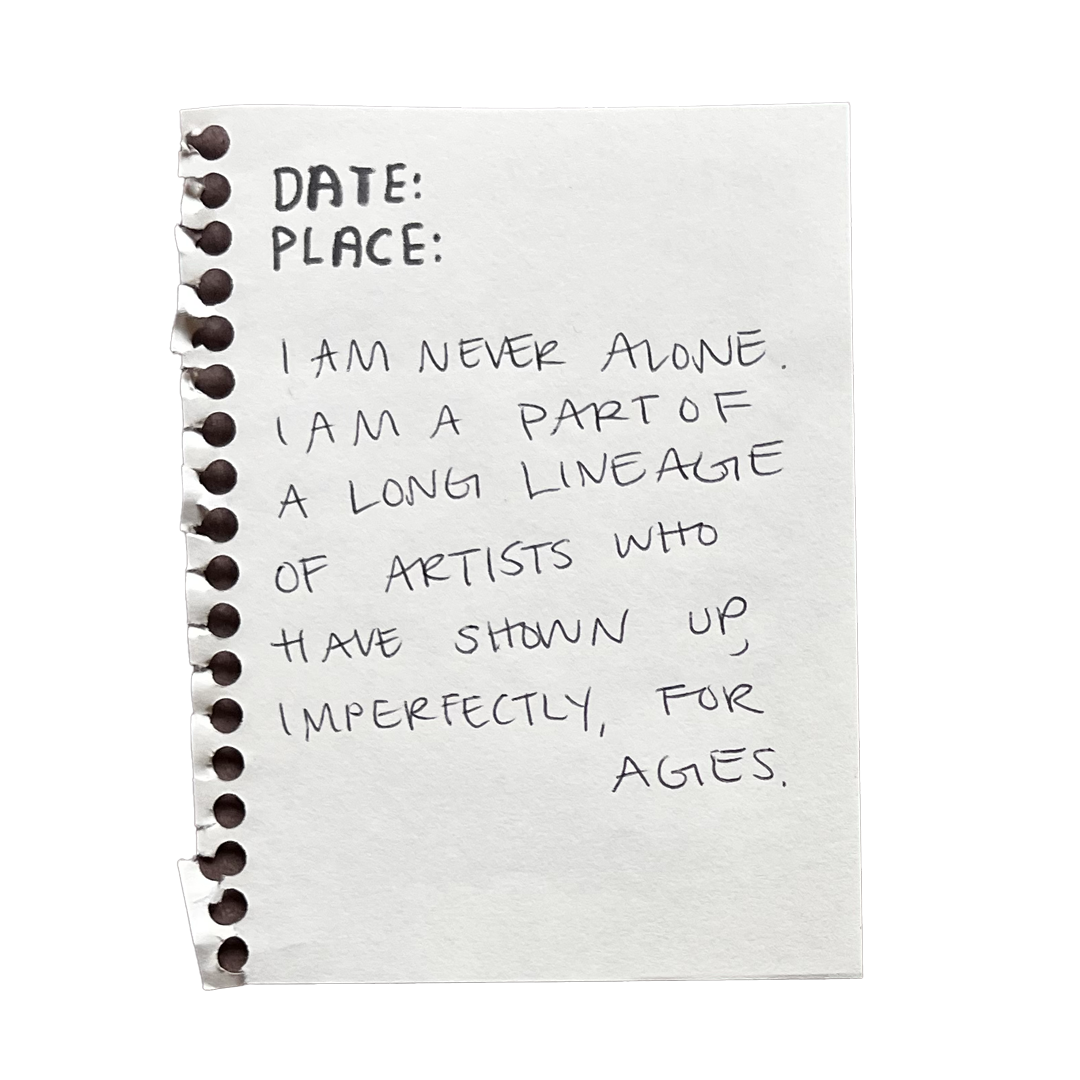 DATE:
PLACE:
I AM NEVER ALONE.
I AM A PART OF
A LONG LINEAGE
OF ARTISTS WHO
HAVE SHOWN UP,
IMPERFECTLY, FOR
AGES.